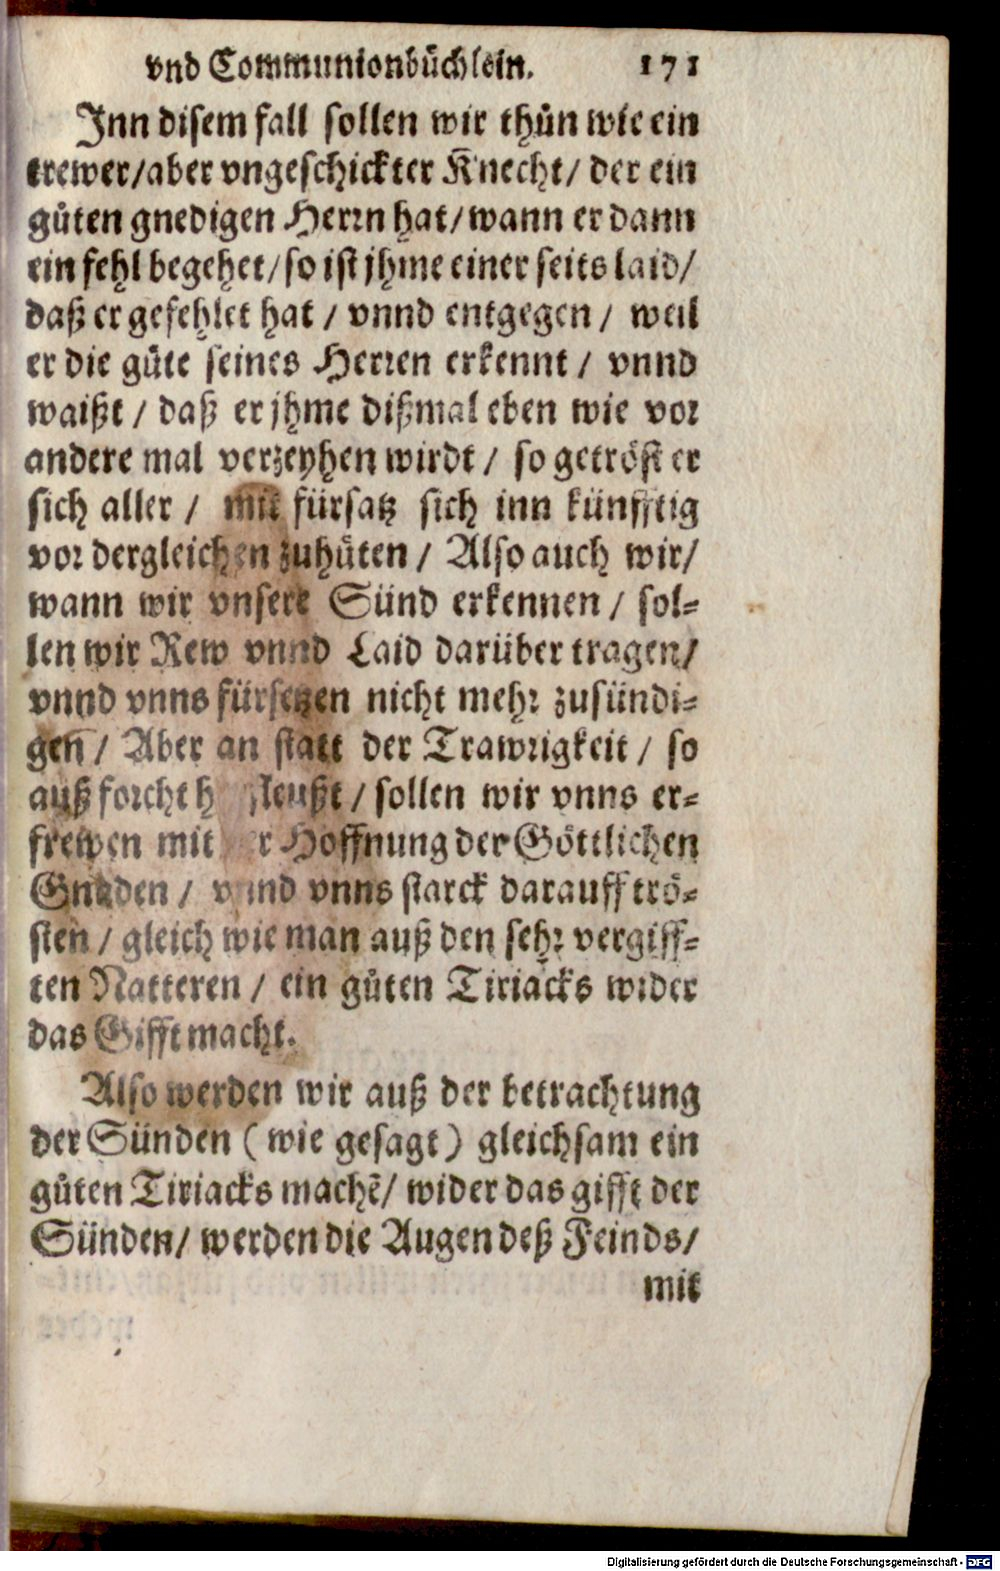 vnd Communionbůchlein. 171
Jnn disem fall sollen wir thůn wie ein
trewer/aber vngeschickter Knecht/ der ein
gůten gnedigen Herrn hat/wann er dann
ein fehl begehet/so ist jhme einer seits laid/
daß er gefehlet hat / vnnd entgegen / weil
er die gůte seines Herren erkennt / vnnd
waißt / daß er jhme dißmal eben wie vor
andere mal verzeyhen wirdt / so getröst er
sich aller / mit fürsatz sich inn künfftig
vor dergleichen zuhůten / Also auch wir/
wann wir vnsere Sünd erkennen / sol-
len wir Rew vnnd Laid darüber tragen/
vnnd vnns fürsetzen nicht mehr zusündi-
gen / Aber an statt der Trawrigkeit / so
auß forcht / sollen wir vnns er-
frewen mit Hoffnung der Göttlichen
Gnaden / vnnd vnns starck darauff trö-
sten / gleich wie man auß den sehr vergiff-
ten Natteren / ein gůten Tiriacks wider
das Gifft macht.
Also werden wir auß der betrachtung
der Sünden (wie gesagt) gleichsam ein
gůten Tiriacks machẽ/ wider das gifft der
Sünden/ werden die Augen deß Feinds/
mit
Digitalisierung gefördert durch die Deutsche Forschungsgemeinschaft - DFG